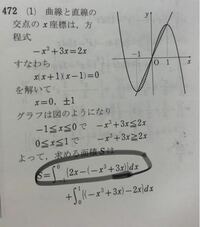 472 (1) 曲線と直線の
交点の x 座標は,方
程式
-x³+3x=2x
すなわち
x(x+1)(x-1)=0
を解いて
x=0, ±1
グラフは図のようになり
-1≦x≦0 で -x³+3x≦2x
0≦x≦1 で -x³+3x≧2x
よって,求める面積 S は
S=∫₋₁⁰{2x-(-x³+3x)}dx
+∫₀¹{(-x³+3x)-2x}dx
y
-1
O
1
x